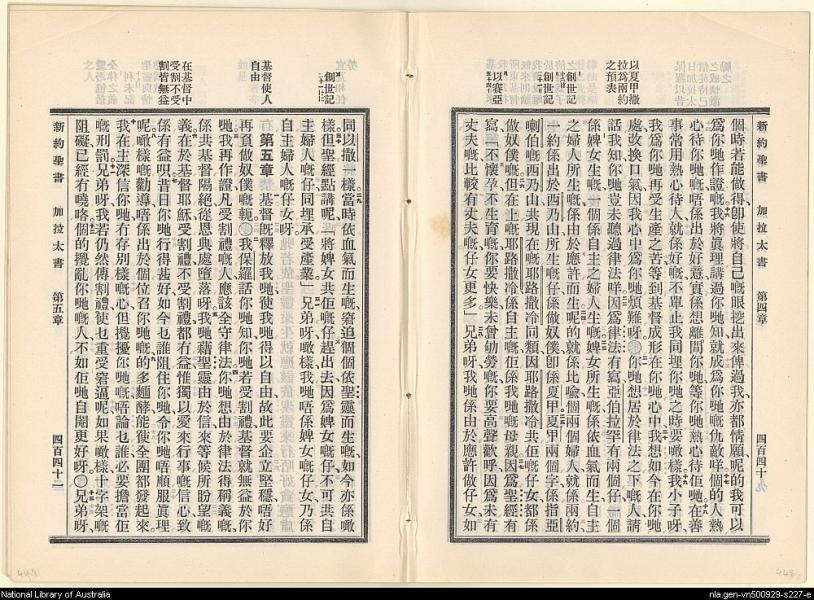 新約聖書 加拉太書 第四章 四百四十
以夏甲撒拉爲兩約之預表
創世記
創世記
以賽亞
個時若能做得、卽使將自己嘅眼挖出來俾過我、亦都情願呢的、我可以
爲你哋作證嘅、我將眞理講過你哋知、就成爲你哋嘅仇敵咩、個的人熱
心待你哋嘅、唔係出於好意、實係想離間你哋、等你哋熱心待佢哋、在善
事常用熱心待人、就係好嘅、不單止我同埋你哋之時、要噉樣、我小子呀、
我爲你哋再受生產之苦、等到基督成形在你哋心中、我想如今在你哋
處、改換口氣、因我心中爲你哋煩難呀、○你哋想居於律法之下嘅人、請
話我知、你哋豈未聽過律法咩、因爲律法有寫、亞伯拉罕有兩個仔、一個
係婢女生嘅、一個係自主之婦人生嘅、婢女所生嘅、係依血氣而生、自主
之婦人所生嘅、係由於應許而生、呢的就係比喻、個兩個婦人、就係兩約、
一約係出於西乃山、所生嘅仔係做奴僕、卽係夏甲、夏甲兩個字、係指亞
喇伯嘅西乃山、共現在嘅耶路撒冷同類、因耶路撒冷共佢嘅仔女、都係
做奴僕嘅、但在上嘅耶路撒冷係自主嘅、佢係我哋嘅母親、因爲聖經有
寫、「不懷孕不生育嘅、你要快樂、未曾劬勞嘅、你要高聲歡呼、因爲未有
丈夫嘅、比較有丈夫嘅仔女更多」兄弟呀、我哋係由於應許做仔女、如
創世記
基督使人自由
在基督中受割不受割皆無益
同以撒一樣、當時依血氣而生嘅、窘迫個個依聖靈而生嘅、如今亦係噉
樣、但聖經點講呢、「將婢女共佢嘅仔趕出去、因爲婢女嘅仔、不可共自
主婦人嘅仔、同埋承受產業」兄弟呀、噉樣我哋唔係婢女嘅仔女、乃係
自主婦人嘅仔女呀、
第五章 基督旣釋放我哋、使我哋得以自由、故此要企立堅穩、唔好
再負做奴僕嘅軛、○我保羅話你哋知、你哋若受割禮、基督就無益於你
哋、我再作證、凡受割禮嘅人、應該全守律法、你哋想由於律法得稱義嘅、
係共基督隔絕、從恩典處墮落呀、我哋藉聖靈由於信、來等候所盼望嘅
義、在於基督耶穌、受割禮不受割禮、都冇益、惟獨以愛來行事嘅信心、致
係有益、唄昔日你哋行得甚好、如今乜誰阻住你哋、令你哋唔順服眞理
呢、噉樣嘅勸導、唔係出於個位召你哋嘅、的多麵酵、能使全團都發起來、
我在主深信你哋冇存別樣嘅心、但攪擾你哋嘅、唔論乜誰、必要擔當佢
嘅刑罰、兄弟呀、我若仍然傳割禮、使乜重受窘逼呢、如果噉樣、十字架嘅
阻礙、已經冇嘵咯、個的攪亂你哋嘅人、不如佢哋自閹更好呀、○兄弟呀、
新約聖書 加拉太書 第五章 四百四十二
National Library of Australia
nla.gen-vn500929-s227-e